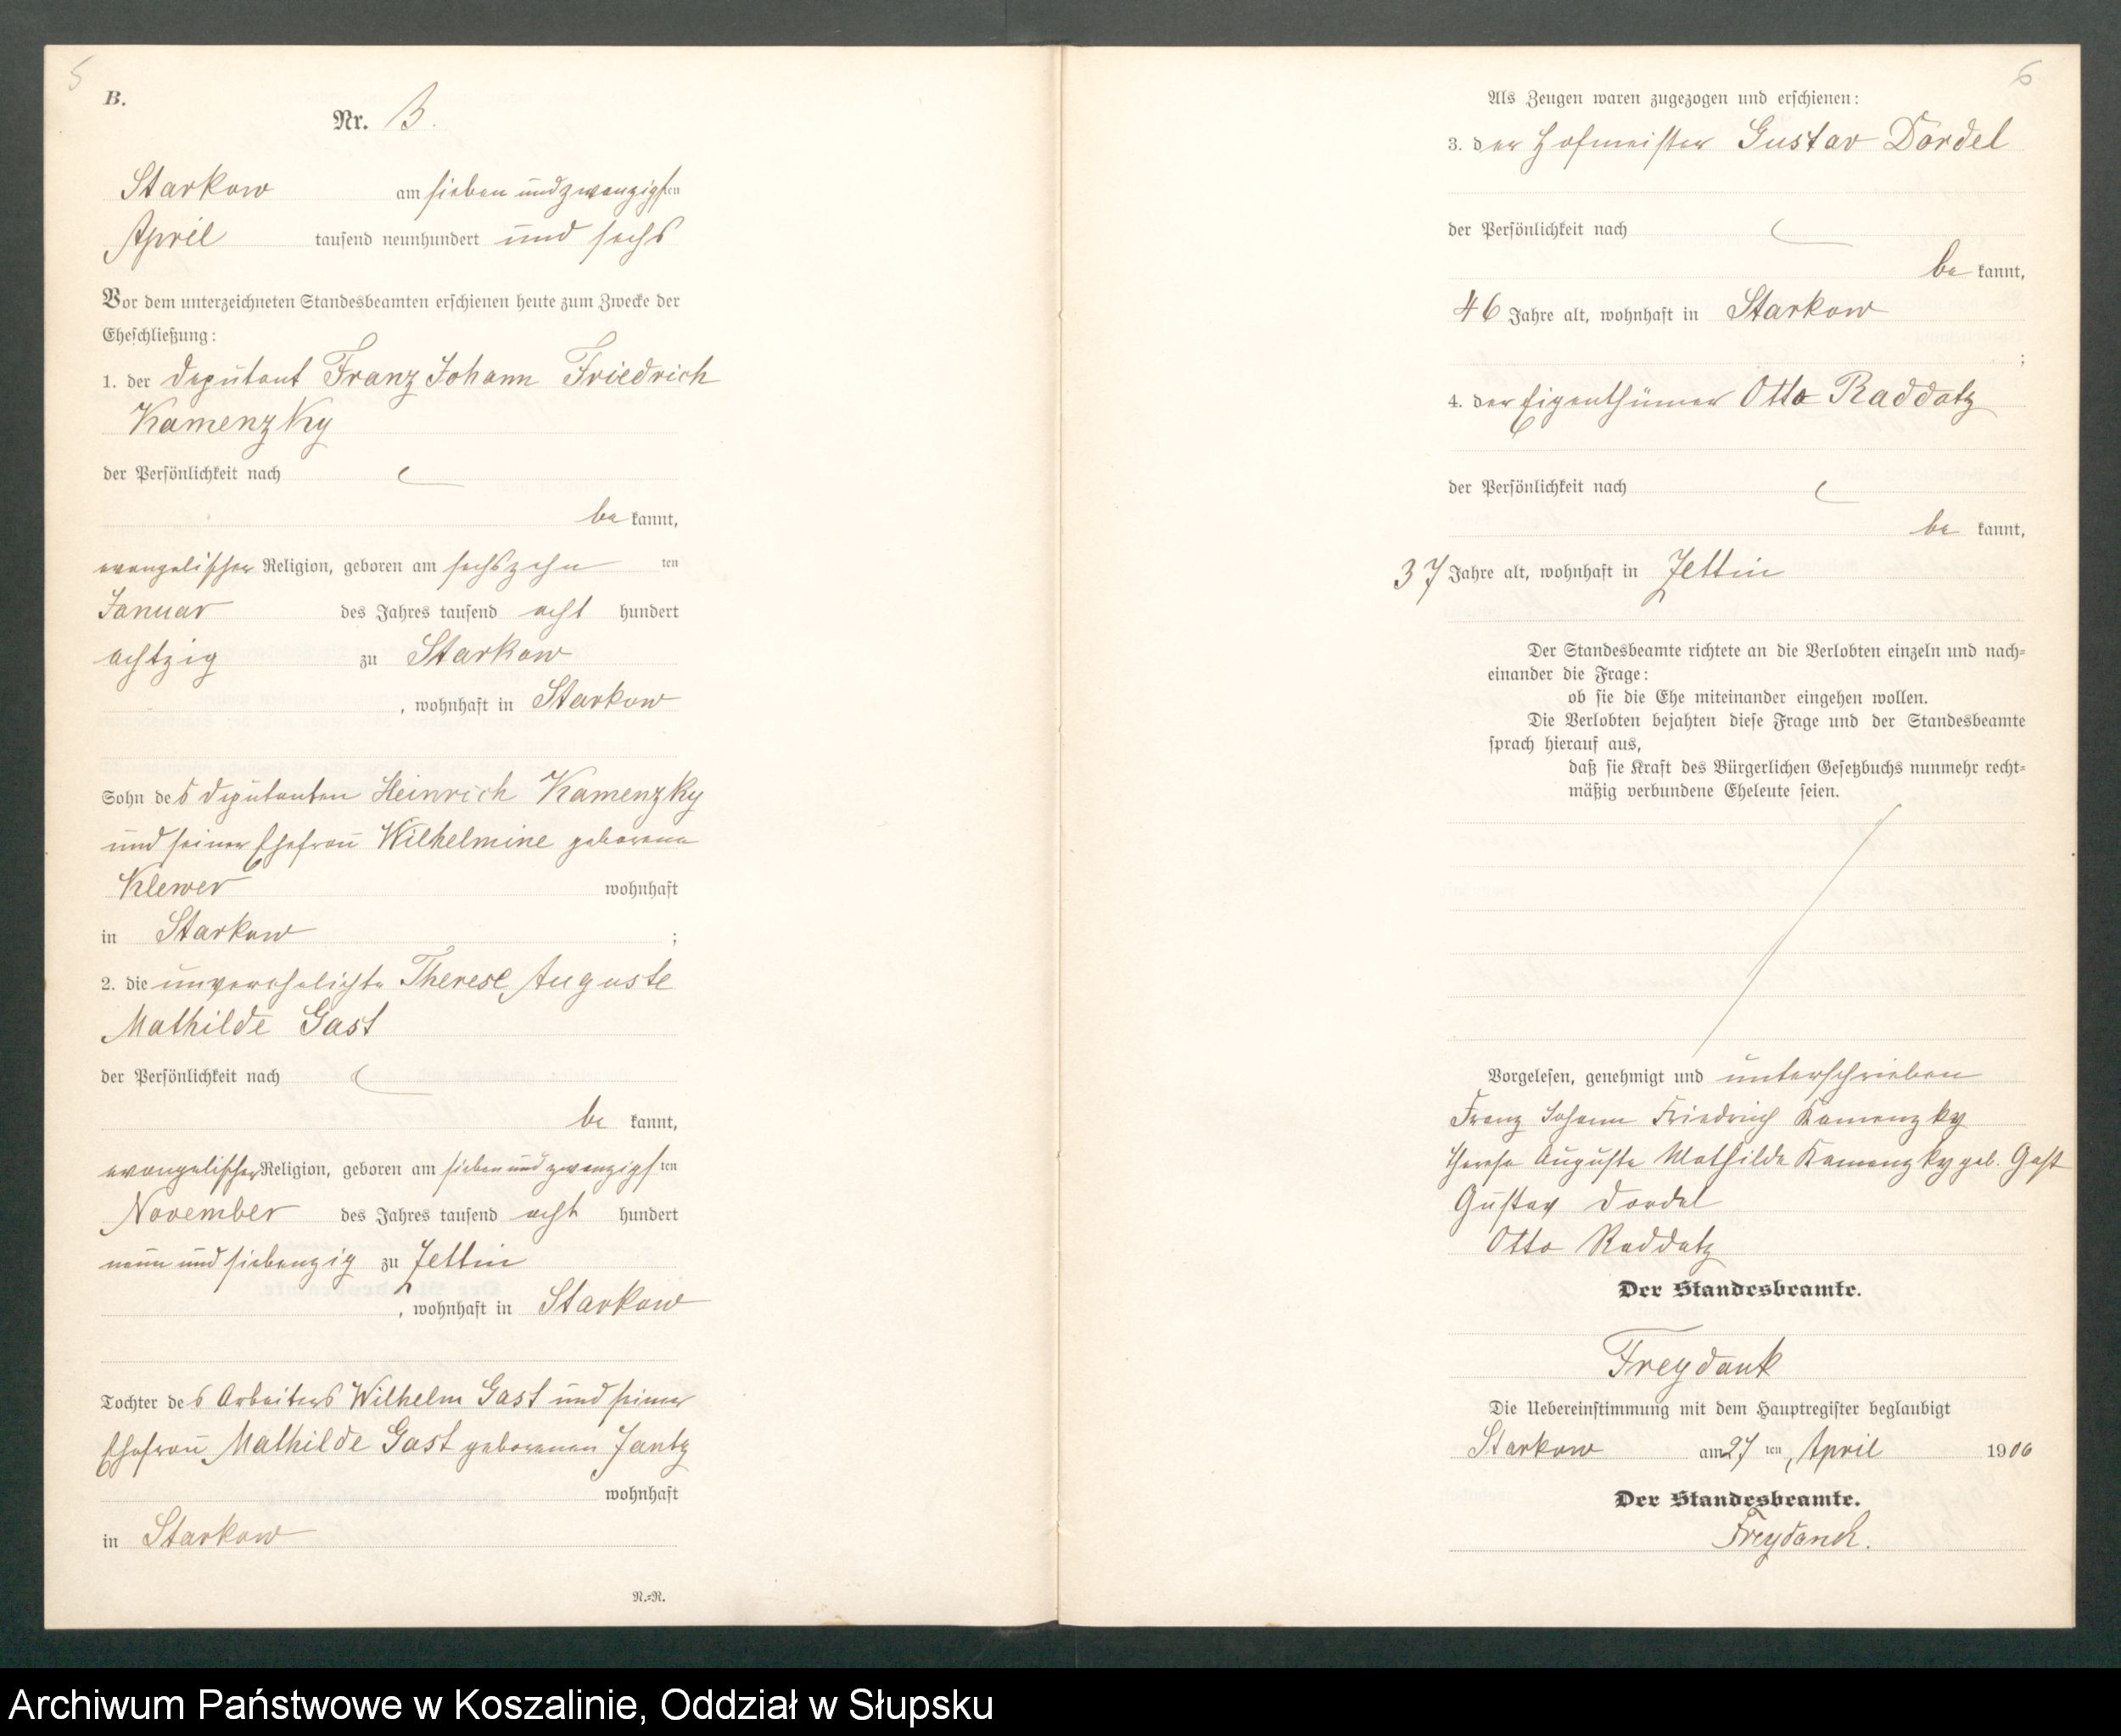 5
B.
Nr. 3.
Starkow am sieben und zwanzigsten
April tausend neunhundert und sechs
Vor dem unterzeichneten Standesbeamten erschienen heute zum Zwecke der
Eheschließung:
1. der Deputant Franz Johann Friedrich
Kamenzky
der Persönlichkeit nach
be kannt,
evangelischer Religion, geboren am sechszehn ten
Januar des Jahres tausend acht hundert
achtzig zu Starkow
, wohnhaft in Starkow
Sohn des Deputanten Heinrich Kamenzky
und seiner Ehefrau Wilhelmine geborene
Klewer wohnhaft
in Starkow ;
2. die unverehelichte Therese Auguste
Mathilde Gast
der Persönlichkeit nach
be kannt,
evangelischer Religion, geboren am sieben und zwanzigsten
November des Jahres tausend acht hundert
neun und siebenzig zu Jettin
, wohnhaft in Starkow
Tochter des Arbeiters Wilhelm Gast und seiner
Ehefrau Mathilde Gast geborenen Jantz
wohnhaft
in Starkow
N.=R.
6
Als Zeugen waren zugezogen und erschienen:
3. der Hofmeister Gustav Dordel
der Persönlichkeit nach
be kannt,
46 Jahre alt, wohnhaft in Starkow
;
4. der Eigenthümer Otto Raddatz
der Persönlichkeit nach
be kannt,
37 Jahre alt, wohnhaft in Jettin
Der Standesbeamte richtete an die Verlobten einzeln und nach=
einander die Frage:
ob sie die Ehe miteinander eingehen wollen.
Die Verlobten bejahten diese Frage und der Standesbeamte
sprach hierauf aus,
daß sie Kraft des Bürgerlichen Gesetzbuchs nunmehr recht=
mäßig verbundene Eheleute seien.
Vorgelesen, genehmigt und unterschrieben
Franz Johann Friedrich Kamenzky
Therese Auguste Mathilde Kamenzky geb. Gast
Gustav Dordel
Otto Raddatz
Der Standesbeamte.
Freydank
Die Uebereinstimmung mit dem Hauptregister beglaubigt
Starkow am 27 ten April 1906
Der Standesbeamte.
Freydank.
Archiwum Państwowe w Koszalinie, Oddział w Słupsku